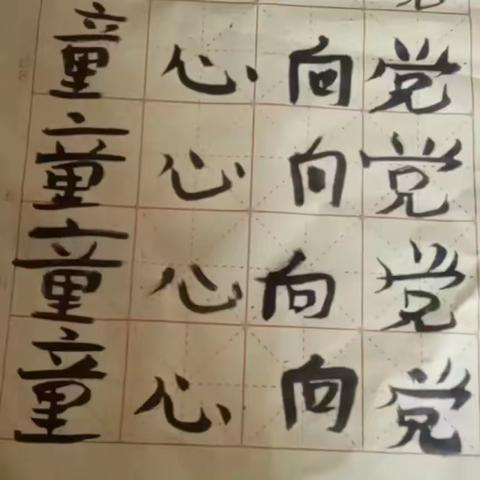 童心向党
童心向党
童心向党
童心向党